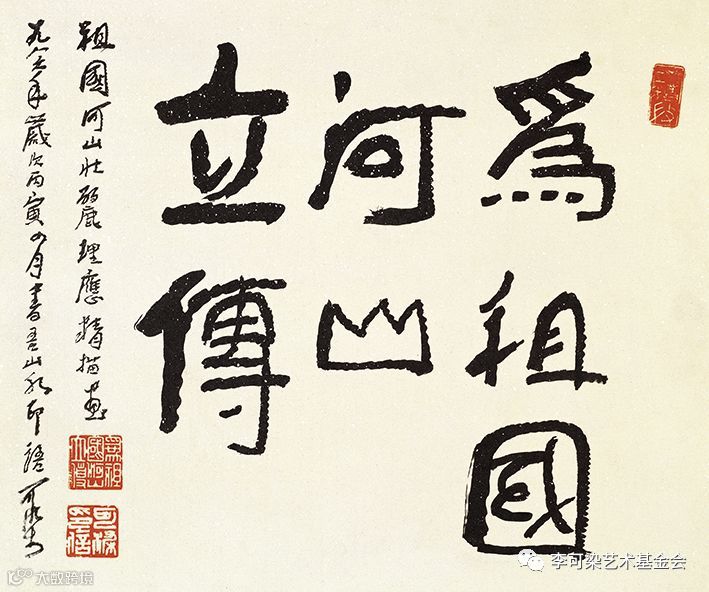 爲祖國
河山
立傳
祖國河山壯麗理應精描畫
一九八六年歲次丙寅四月書吾山水印語 可染
爲祖國河山立傳
李可染艺术基金会
大数跨境